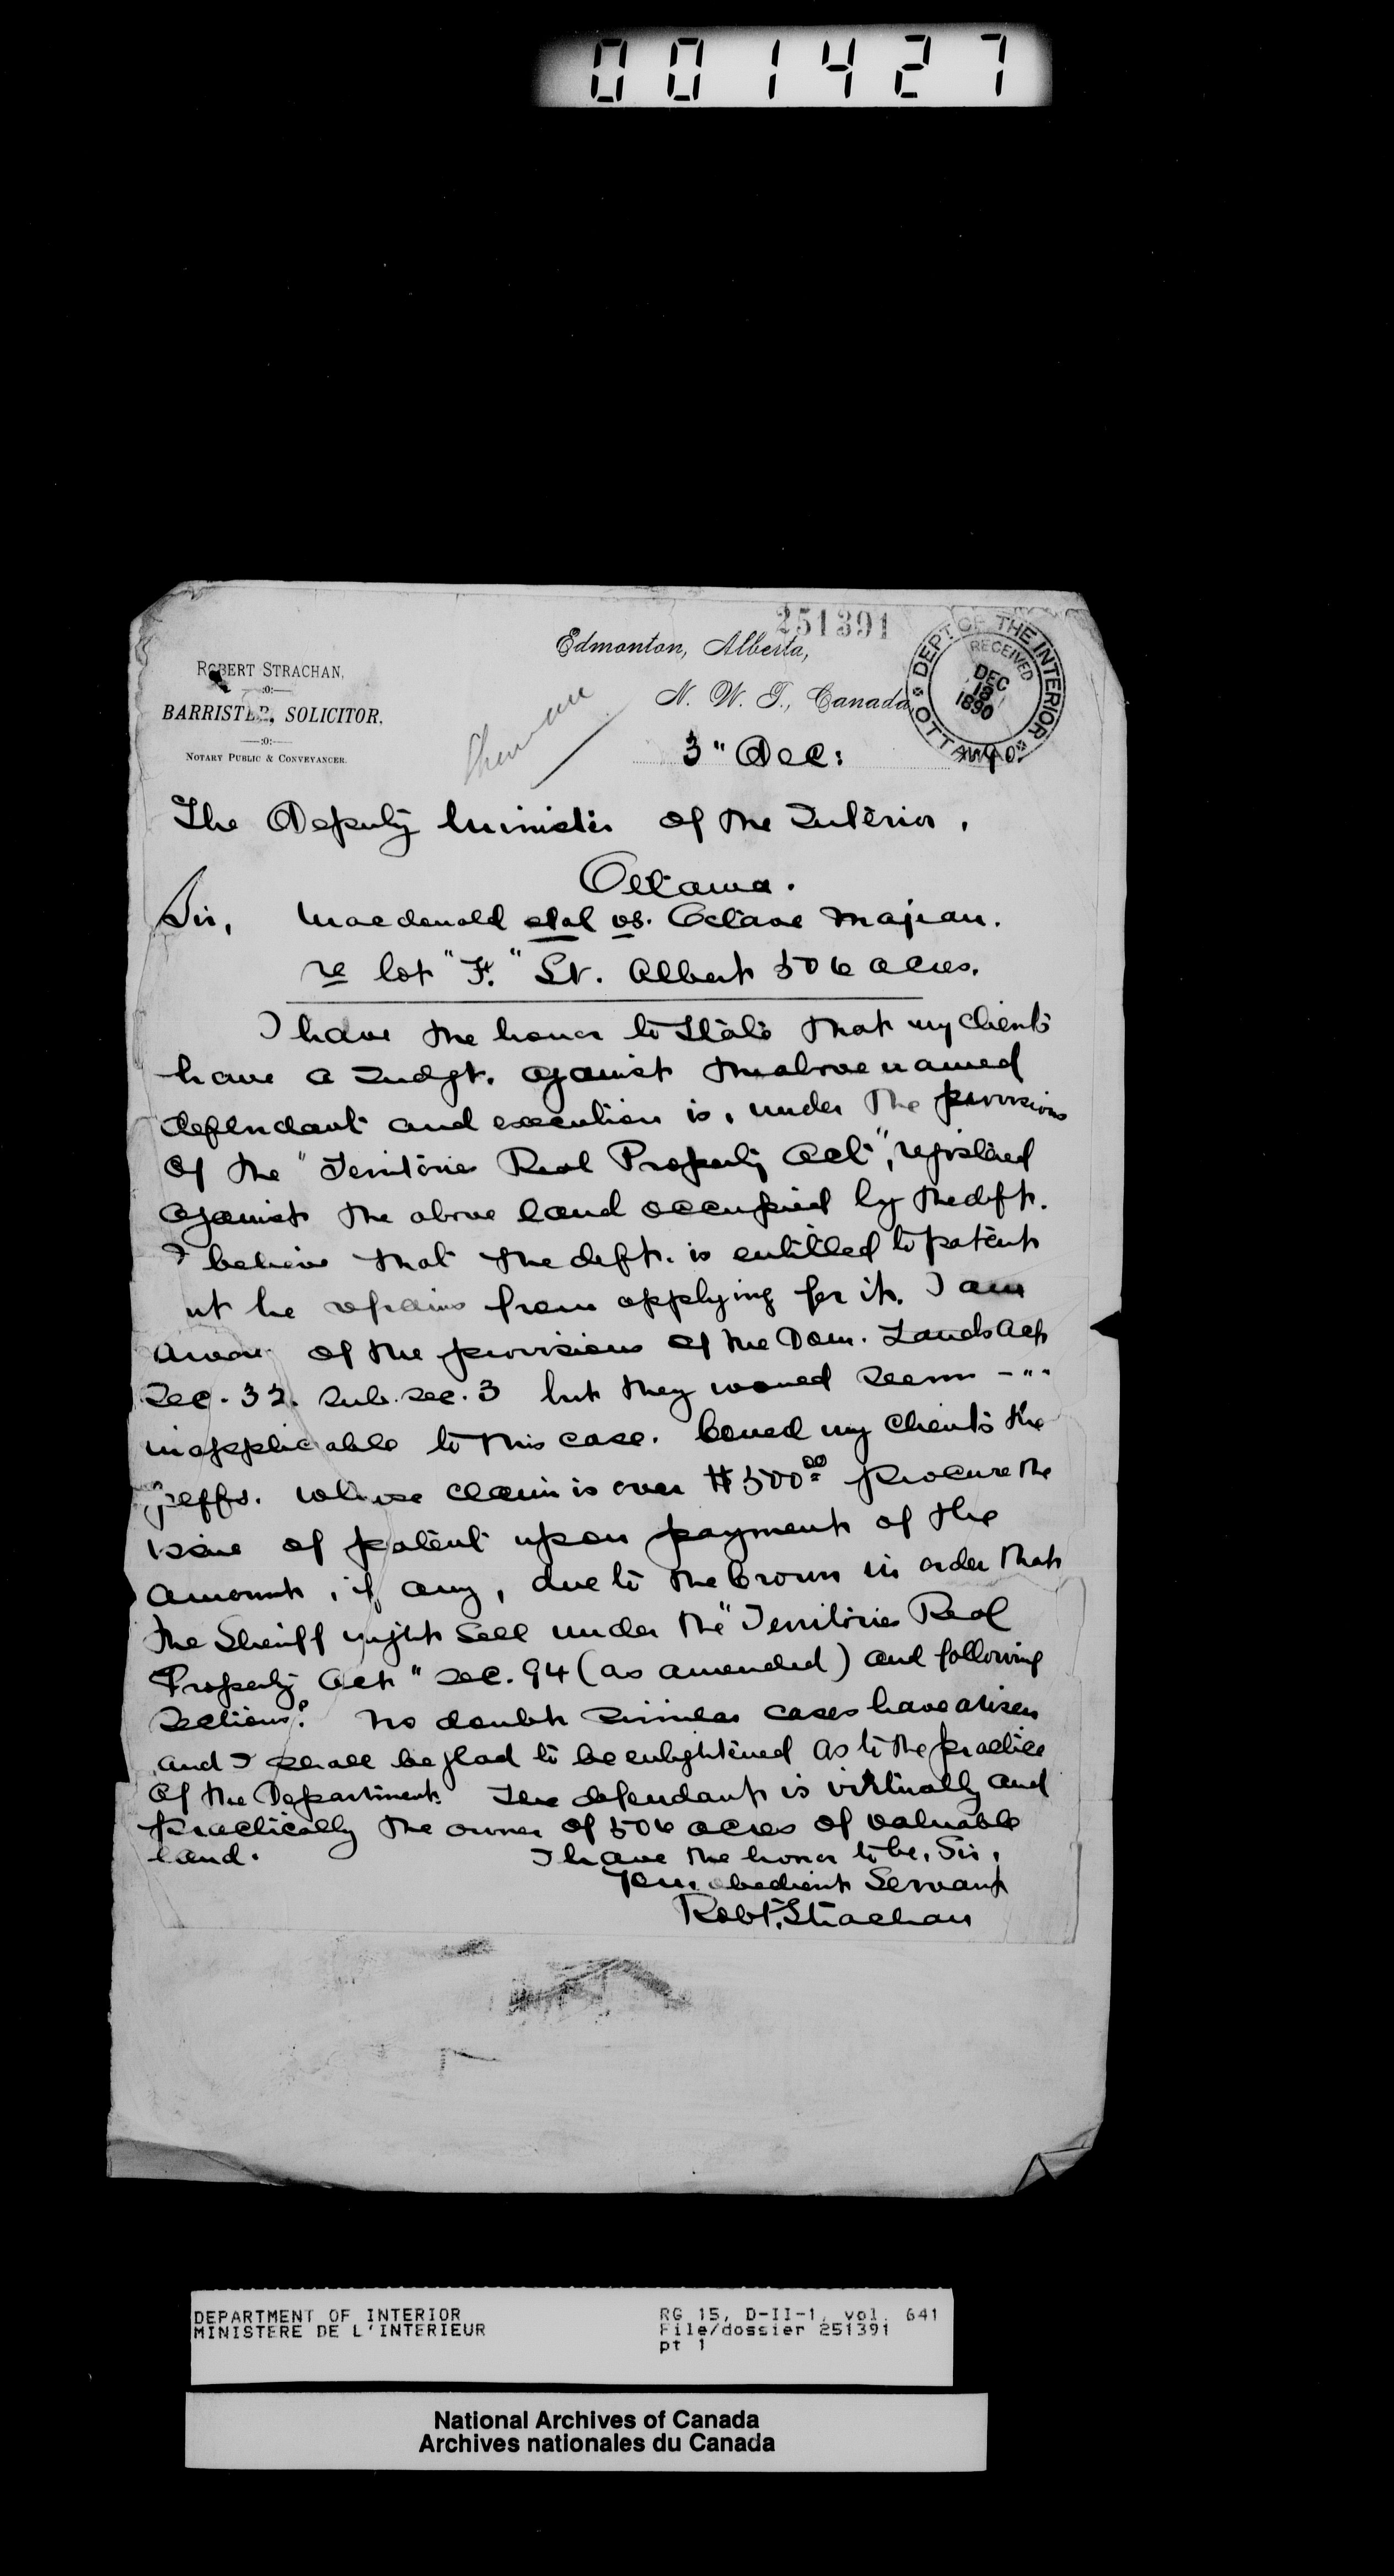 001427
251391
Edmonton, Alberta,
N. W. T., Canada,
ROBERT STRACHAN,
—:o:—
BARRISTER, SOLICITOR.
—:o:—
NOTARY PUBLIC & CONVEYANCER.
DEPT OF THE INTERIOR
RECEIVED
DEC
1890
OTTAWA
3" Dec: 90
The Deputy Minister of the Interior,
Ottawa.
Sir, Macdonald et al vs. Octave Majeau.
re lot "F." St. Albert 506 acres.
I have the honor to state that my clients
have a Judgt. against the above named
defendant and execution is, under the provisions
of the "Territories Real Property Act", registered
against the above land occupied by the deft.
I believe that the deft. is entitled to patent
ut he refrains from applying for it. I am
aware of the provisions of the Dom. Lands Act
Sec. 32. sub. sec. 3 but they would seem - " "
inapplicable to this case. Could my clients the
pltffs. whose claim is over $500.00 procure the
issue of patent upon payment of the
amount, if any, due to the Crown in order that
the Sheriff might sell under the "Territories Real
Property Act" sec. 94 (as amended) and following
sections? No doubt similar cases have arisen
and I shall be glad to be enlightened as to the practice
of the Department. The defendant is virtually and
practically the owner of 506 acres of valuable
land. I have the honor to be, Sir,
Your obedient Servant
Robt. Strachan
DEPARTMENT OF INTERIOR
MINISTERE DE L'INTERIEUR
RG 15, D-II-1, vol. 641
File/dossier 251391
pt 1
National Archives of Canada
Archives nationales du Canada